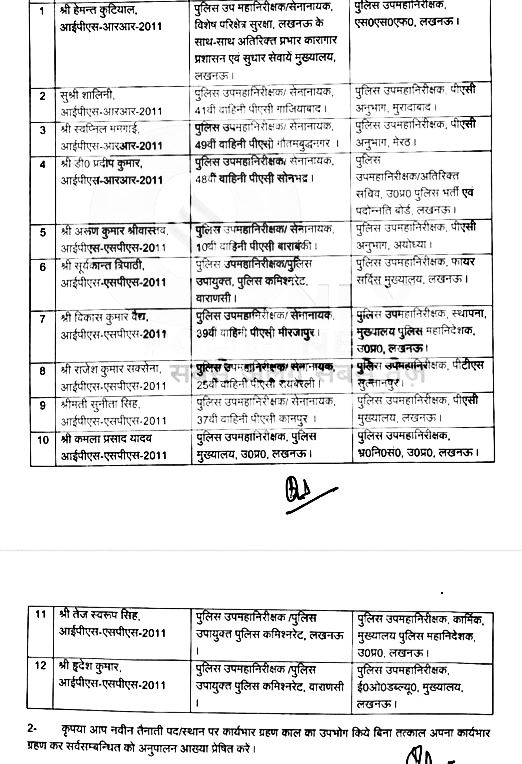 1 श्री हेमन्त कुटियाल, पुलिस उप महानिरीक्षक/सेनानायक, पुलिस उपमहानिरीक्षक,
आईपीएस-आरआर-2011 विशेष परिक्षेत्र सुरक्षा, लखनऊ के एस0एस0एफ0, लखनऊ।
साथ-साथ अतिरिक्त प्रभार कारागार
प्रशासन एवं सुधार सेवायें मुख्यालय,
लखनऊ।
2 सुश्री शालिनी, पुलिस उपमहानिरीक्षक/ सेनानायक, पुलिस उपमहानिरीक्षक, पीएसी
आईपीएस-आरआर-2011 41वीं वाहिनी पीएसी गाजियाबाद। अनुभाग, मुरादाबाद।
3 श्री स्वप्निल ममगाई, पुलिस उपमहानिरीक्षक/ सेनानायक, पुलिस उपमहानिरीक्षक, पीएसी
आईपीएस-आरआर-2011 49वीं वाहिनी पीएसी गौतमबुद्धनगर। अनुभाग, मेरठ।
4 श्री डी0 प्रदीप कुमार, पुलिस उपमहानिरीक्षक/ सेनानायक, पुलिस
आईपीएस-आरआर-2011 48वीं वाहिनी पीएसी सोनभद्र। उपमहानिरीक्षक/अतिरिक्त
सचिव, उ0प्र0 पुलिस भर्ती एवं
पदोन्नति बोर्ड, लखनऊ।
5 श्री अरूण कुमार श्रीवास्तव, पुलिस उपमहानिरीक्षक/ सेनानायक, पुलिस उपमहानिरीक्षक, पीएसी
आईपीएस-एसपीएस-2011 10वीं वाहिनी पीएसी बाराबंकी। अनुभाग, अयोध्या।
6 श्री सूर्यकान्त त्रिपाठी, पुलिस उपमहानिरीक्षक/पुलिस पुलिस उपमहानिरीक्षक, फायर
आईपीएस-एसपीएस-2011 उपायुक्त, पुलिस कमिश्नरेट, सर्विस मुख्यालय, लखनऊ।
वाराणसी।
7 श्री विकास कुमार वैद्य, पुलिस उपमहानिरीक्षक/ सेनानायक, पुलिस उपमहानिरीक्षक, स्थापना,
आईपीएस-एसपीएस-2011 39वीं वाहिनी पीएसी मीरजापुर। मुख्यालय पुलिस महानिदेशक,
उ0प्र0, लखनऊ।
8 श्री राजेश कुमार सक्सेना, पुलिस उपमहानिरीक्षक/ सेनानायक, पुलिस उपमहानिरीक्षक, पीटीएस
आईपीएस-एसपीएस-2011 25वीं वाहिनी पीएसी रायबरेली। सुल्तानपुर।
9 श्रीमती सुनीता सिंह, पुलिस उपमहानिरीक्षक/ सेनानायक, पुलिस उपमहानिरीक्षक, पीएसी
आईपीएस-एसपीएस-2011 37वीं वाहिनी पीएसी कानपुर। मुख्यालय, लखनऊ।
10 श्री कमला प्रसाद यादव पुलिस उपमहानिरीक्षक, पुलिस पुलिस उपमहानिरीक्षक,
आईपीएस-एसपीएस-2011 मुख्यालय, उ0प्र0, लखनऊ। भ्र0नि0सं0, उ0प्र0, लखनऊ।
11 श्री तेज स्वरूप सिंह, पुलिस उपमहानिरीक्षक /पुलिस पुलिस उपमहानिरीक्षक, कार्मिक,
आईपीएस-एसपीएस-2011 उपायुक्त पुलिस कमिश्नरेट, लखनऊ मुख्यालय पुलिस महानिदेशक,
। उ0प्र0, लखनऊ।
12 श्री हृदेश कुमार, पुलिस उपमहानिरीक्षक /पुलिस पुलिस उपमहानिरीक्षक,
आईपीएस-एसपीएस-2011 उपायुक्त पुलिस कमिश्नरेट, वाराणसी ई0ओ0डब्ल्यू0, मुख्यालय,
। लखनऊ।
2- कृपया आप नवीन तैनाती पद/स्थान पर कार्यभार ग्रहण काल का उपभोग किये बिना तत्काल अपना कार्यभार
ग्रहण कर सर्वसम्बन्धित को अनुपालन आख्या प्रेषित करें।